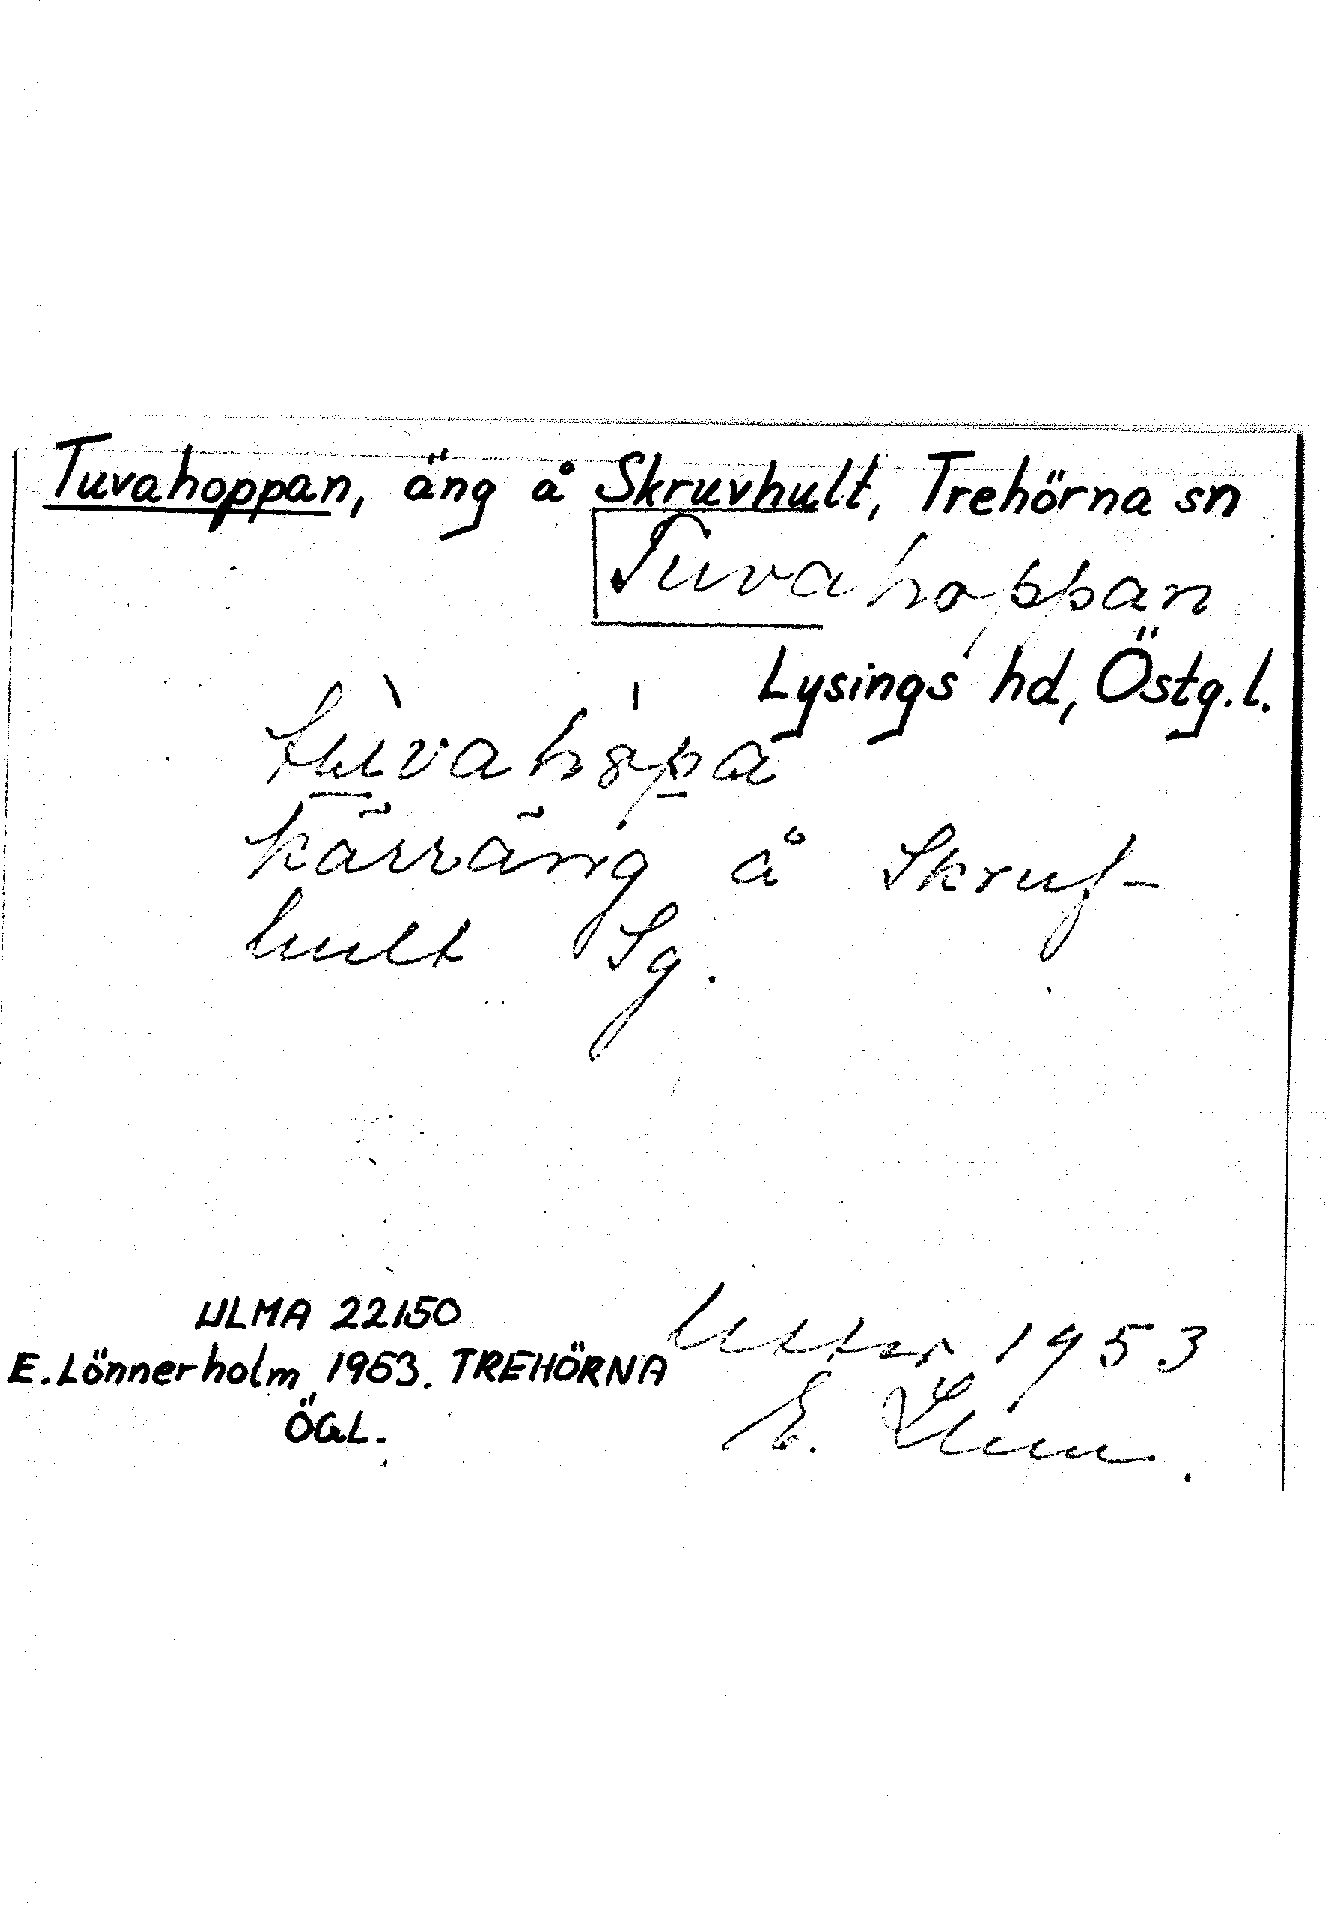 Tuvahoppan, äng å Skruvhult, Trehörna sn
Tuvahoppan
Lysings hd, Östg.l.
tuvahopa
kärräng å Skruf-
hult Sg.
ULMA 22150
E. Lönnerholm 1953. TREHÖRNA
ÖGL.
1953
E.